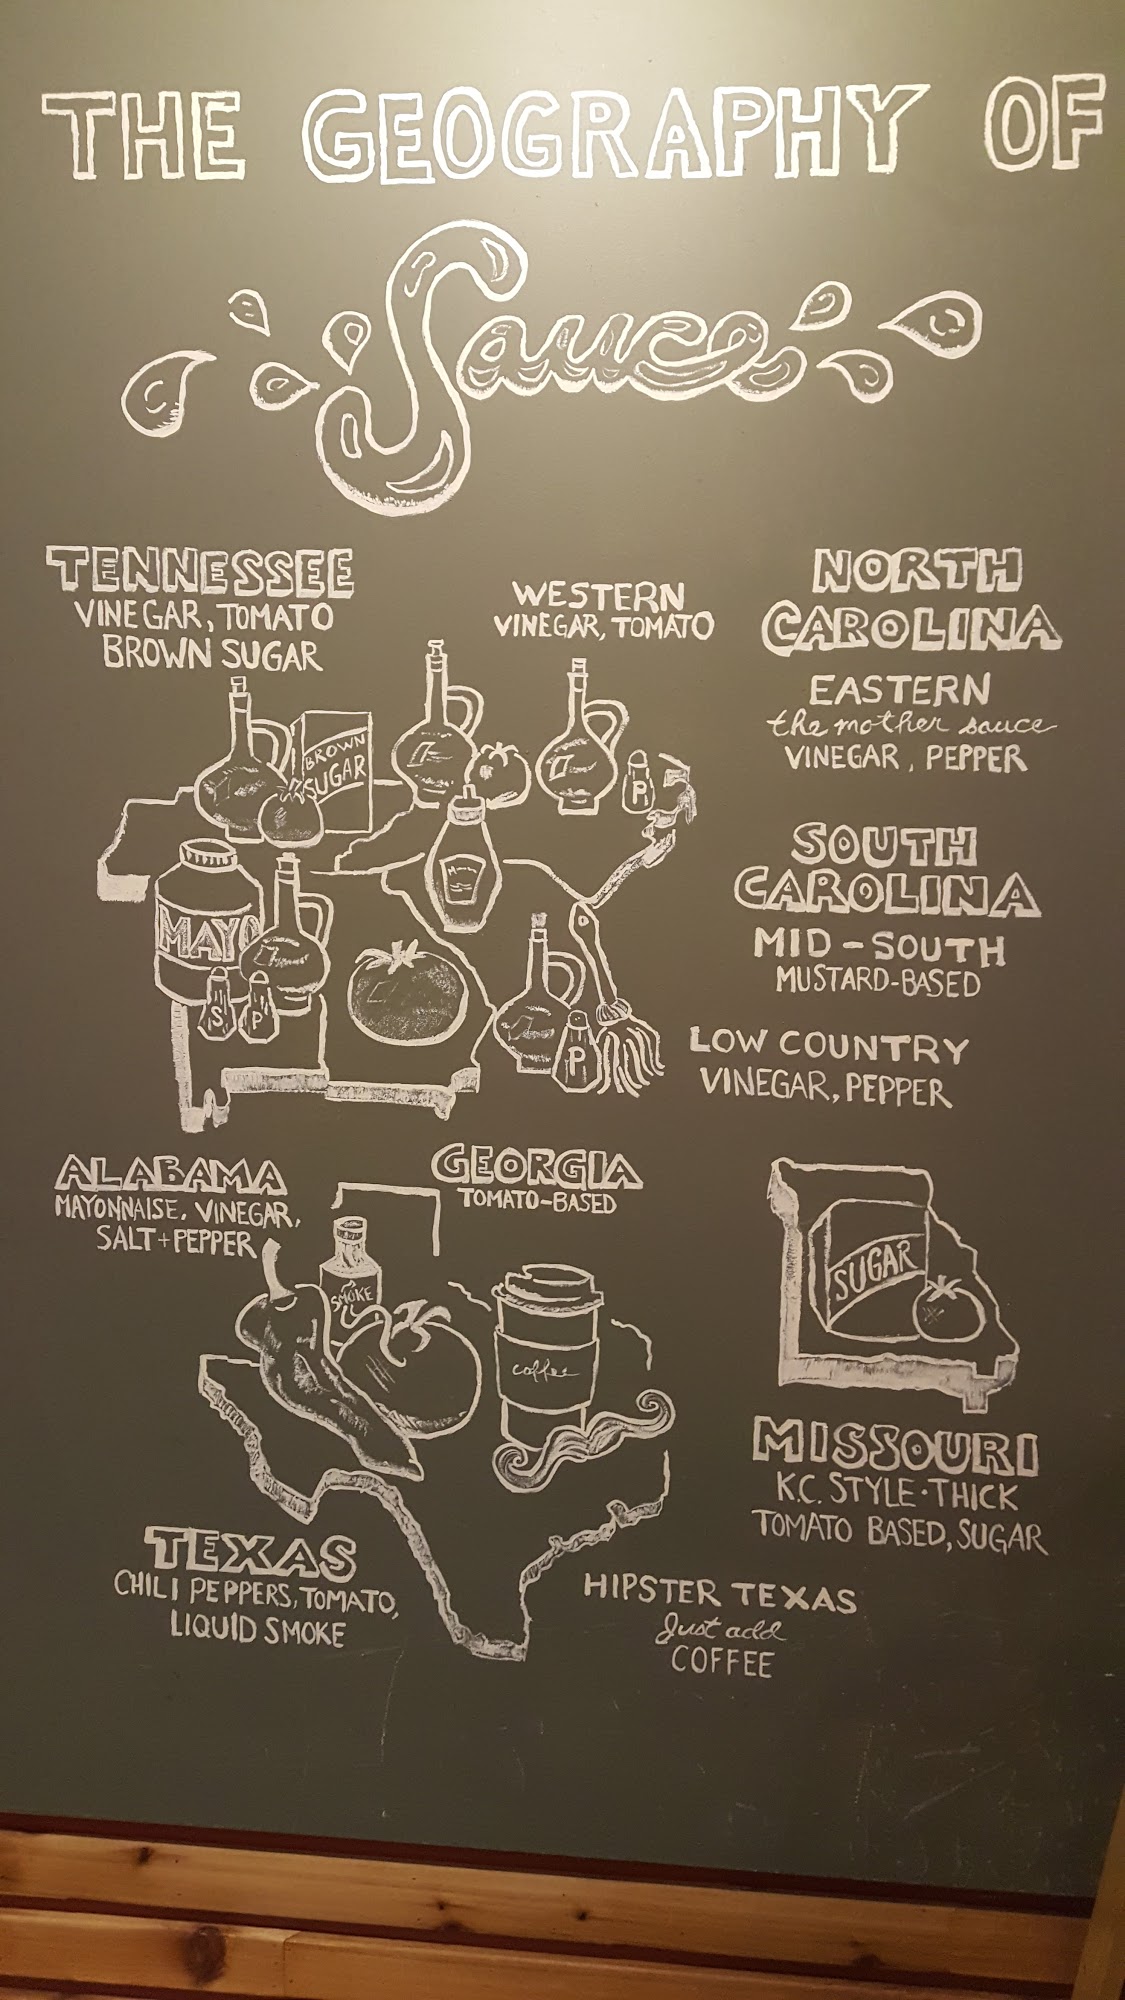 THE GEOGRAPHY OF
Sauce
TENNESSEE
VINEGAR, TOMATO
BROWN SUGAR
WESTERN
VINEGAR, TOMATO
NORTH
CAROLINA
EASTERN
the mother sauce
VINEGAR, PEPPER
BROWN
SUGAR
P
MAYO
S
P
P
SOUTH
CAROLINA
MID-SOUTH
MUSTARD-BASED
LOW COUNTRY
VINEGAR, PEPPER
ALABAMA
MAYONNAISE, VINEGAR,
SALT + PEPPER
GEORGIA
TOMATO-BASED
SMOKE
coffee
SUGAR
MISSOURI
K.C. STYLE · THICK
TOMATO BASED, SUGAR
TEXAS
CHILI PEPPERS, TOMATO,
LIQUID SMOKE
HIPSTER TEXAS
Just add
COFFEE